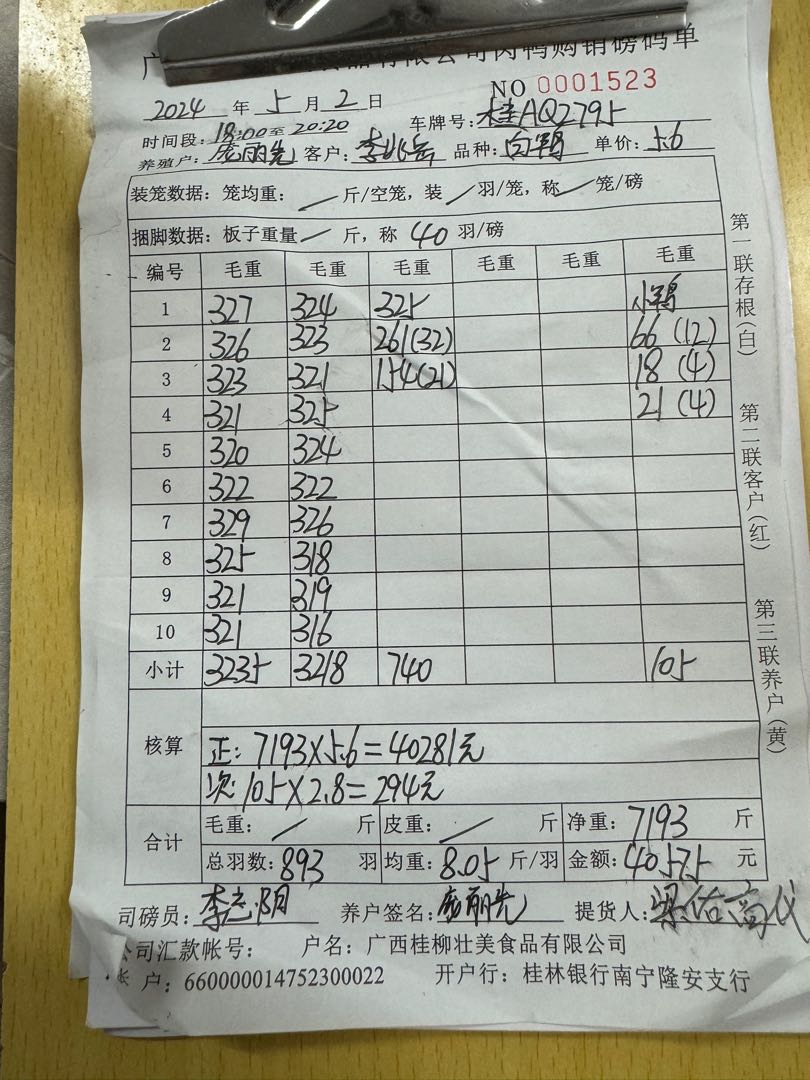 广 食品有限公司肉鸭购销磅码单
NO 0001523
2024 年 5 月 2 日
时间段: 18:00至20:20 车牌号: 桂AQ2795
养殖户: 庞丽先 客户: 李兆岳 品种: 白鸭 单价: 5.6
装笼数据: 笼均重: / 斤/空笼, 装 / 羽/笼, 称 / 笼/磅
捆脚数据: 板子重量 / 斤, 称 40 羽/磅
编号 毛重 毛重 毛重 毛重 毛重 毛重
1 327 324 325 小鸭
2 326 323 261(32) 66 (12)
3 323 321 154(21) 18 (4)
4 321 325 21 (4)
5 320 324
6 322 322
7 329 326
8 325 318
9 321 319
10 321 316
小计 3235 3218 740 105
核算
正: 7193×5.6=40281元
次: 105×2.8=294元
合计
毛重: / 斤 皮重: / 斤 净重: 7193 斤
总羽数: 893 羽 均重: 8.05 斤/羽 金额: 40575 元
司磅员: 李 阴 养户签名: 庞丽先 提货人: 梁佑高代
公司汇款帐号: 户名: 广西桂柳壮美食品有限公司
帐 户: 660000014752300022 开户行: 桂林银行南宁隆安支行
第一联存根(白)
第二联客户(红)
第三联养户(黄)